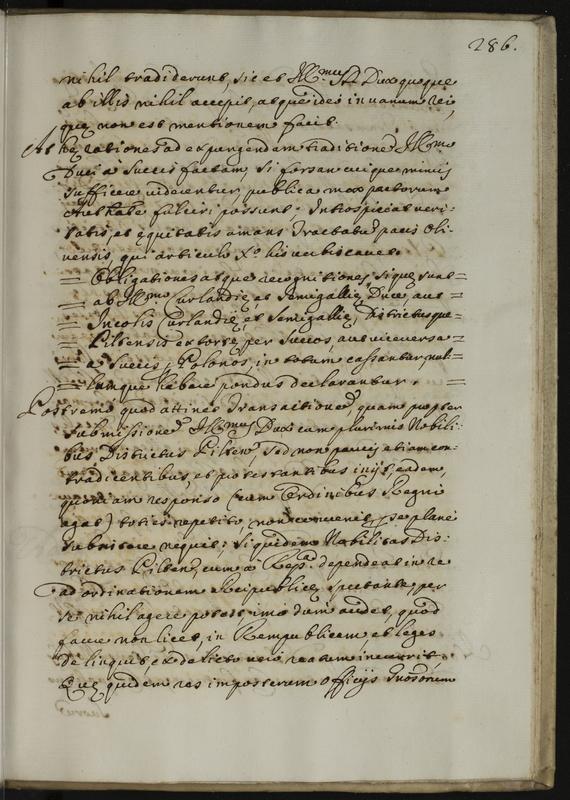 286.
nihil tradiderunt, sic et Illmus D. Dux quoque
ab illis nihil accepit, atque ideo in vanum rei,
quę non est mentionem facit.
At hę rationes ad expungendam traditionē Illmo
Duci a Suecis factam, si forsan cuique minus
sufficere viderentur, publica mox pactorum
possunt. Introspiciat veri-
tatis, et ęquitatis amans Tractatus pacis Oli-
vensis, qui articulo Xo his verbis cavet.
= Obligationes atque recognitiones, si quę sunt =
= ab Illmo Curlandię et Semigallię Duce, aut =
= Incolis Curlandię, et Semigallię, Districtusque =
= Piltensis extortę per Suecos, aut vice versa =
= a Suecis per Polonos, in totum cassantur, nul- =
= lumque habere pondus declarantur. =
Postremo quod attinet Transactionē, quam propter
submissionē Illmus Dux cum plurimis Nobili-
bus Districtus Pilten. sed non paucis etiam con-
tradicentibus, et protestantibus inijt, eadem,
quoniam responso (cum Ordinibus Regni
agat) toties repetito, non convenit, per se plane
subsistere nequit; siquidem Nobilitas Dis-
trictus Pilten. cum a Rep. dependeat in re
ad ordinationem Reipublicę spectante per
se nihil agere potest imo dum audet, quod
facere non licet, in Rempublicam, et leges
delinquit, ex delicto vero reatum incurrit.
Quę quidem res imposterum Officijs Instigatorum